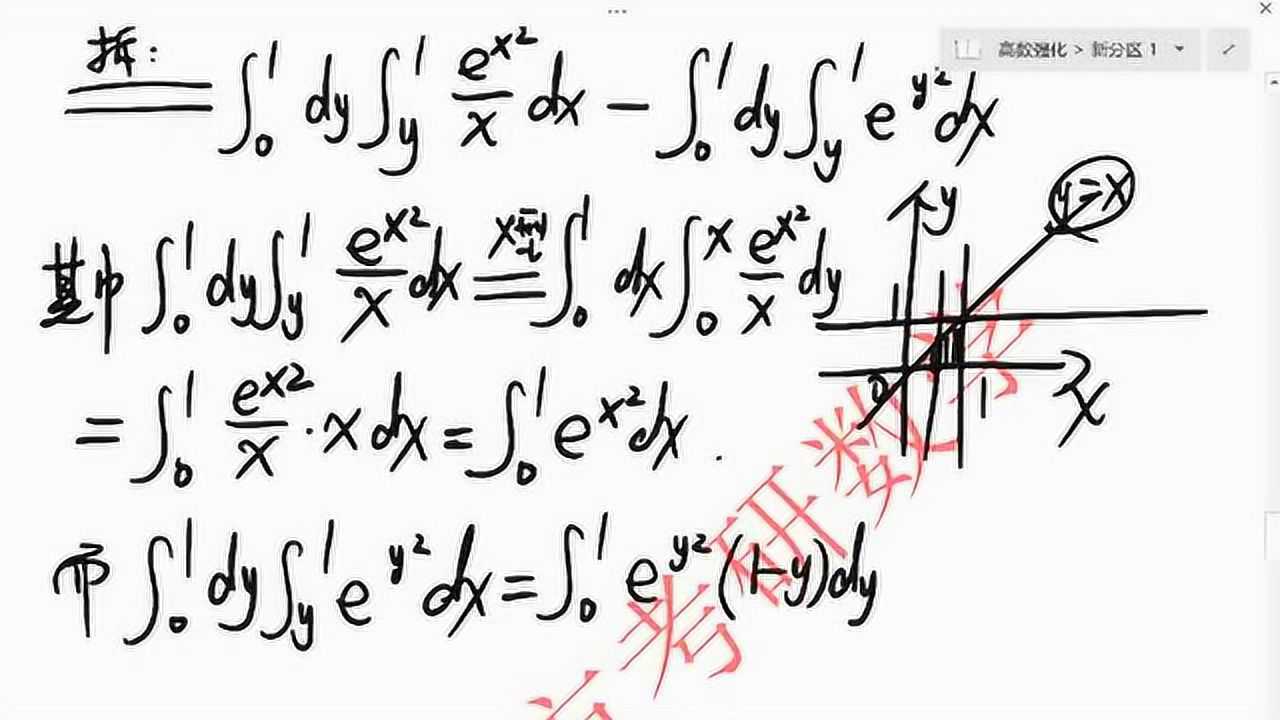 高数强化 > 新分区 1
拆:
= ∫₀¹ dy ∫_y¹ e^{x²}/x dx − ∫₀¹ dy ∫_y¹ e^{y²} dx
其中 ∫₀¹ dy ∫_y¹ e^{x²}/x dx = ∫₀¹ dx ∫₀^x e^{x²}/x dy
= ∫₀¹ e^{x²}/x · x dx = ∫₀¹ e^{x²} dx .
而 ∫₀¹ dy ∫_y¹ e^{y²} dx = ∫₀¹ e^{y²} (1−y) dy
y
y=x
1
0
1
x
考研数学